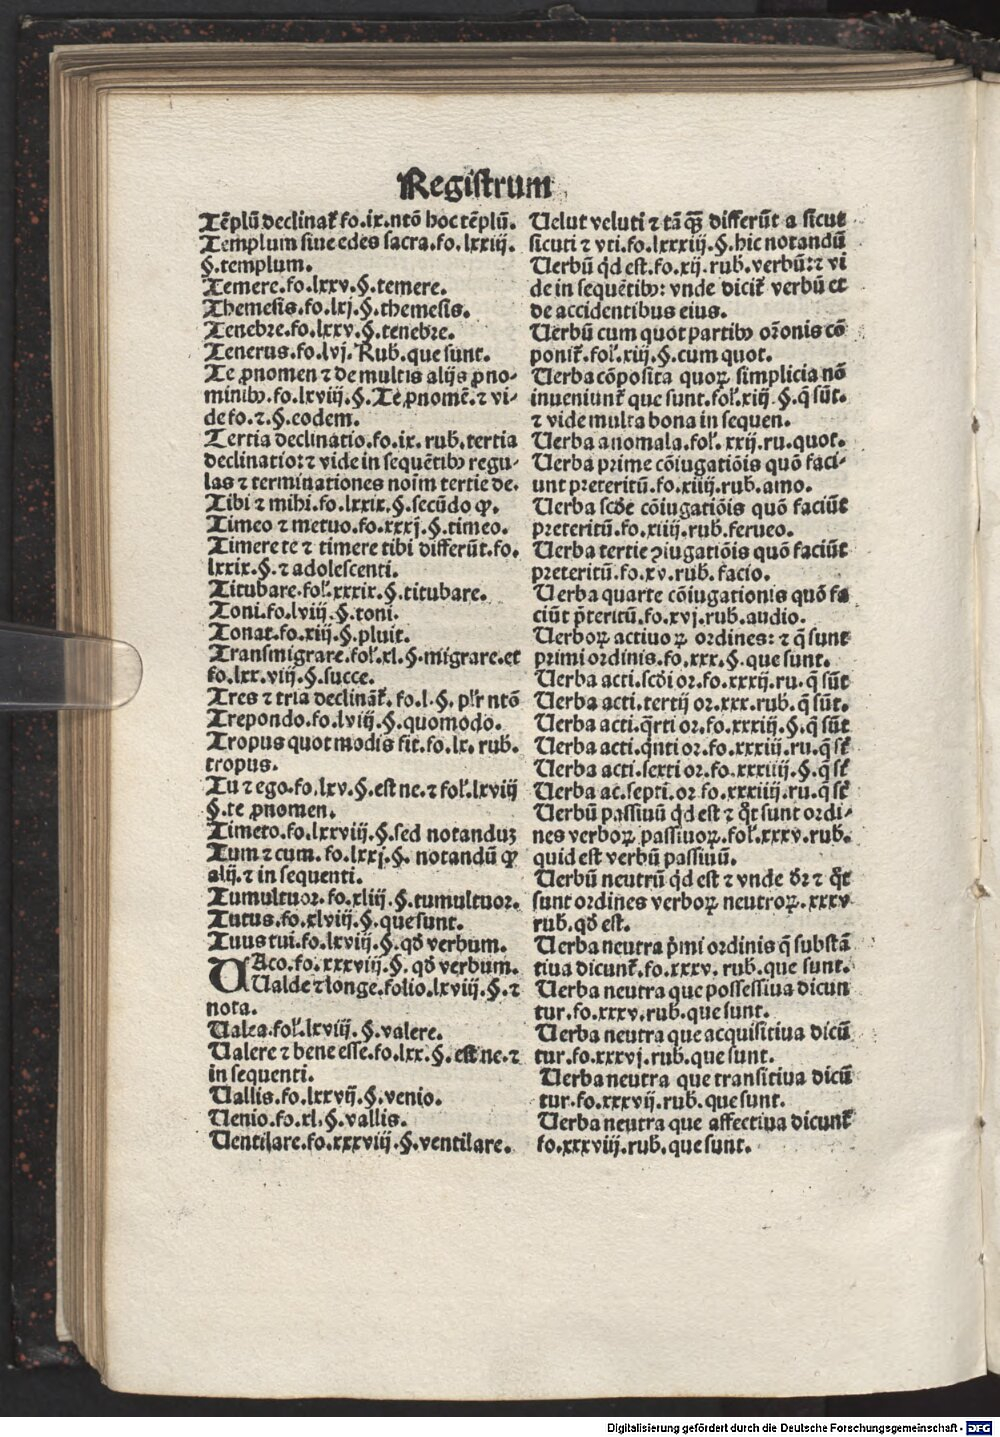 Registrum
Tēplū declinat᷑ fo.ix.ntō hoc tēplū.
Templum siue edes sacra.fo.lxxiij.
§.templum.
Temere.fo.lxxv.§.temere.
Themesis.fo.lxj.§.themesis.
Tenebre.fo.lxxv.§.tenebre.
Tenerus.fo.lvj. Rub̄.que sunt.
Te ꝓnomen ⁊ de multis alijs ꝓno-
minibꝫ.fo.lxviij.§.Te ꝓnomē.⁊ vi-
de fo.⁊.§.eodem.
Tertia declinatio.fo.ix. rub.tertia
declinatio:⁊ vide in sequētibꝫ regu-
las ⁊ terminationes noīm tertie de.
Tibi ⁊ mihi.fo.lxxix.§.secūdo ꝙ.
Timeo ⁊ metuo.fo.xxxj.§.timeo.
Timere te ⁊ timere tibi differūt.fo.
lxxix.§.⁊ adolescenti.
Titubare.fol̉.xxxix.§.titubare.
Toni.fo.lviij.§.toni.
Tonat.fo.xiij.§.pluit.
Transmigrare.fol̉.xl.§.migrare.et
fo.lxx.viij.§.succe.
Tres ⁊ tria declinãt᷑.fo.l.§.pl̉r ntō
Trepondo.fo.lviij.§.quomodo.
Tropus quot modis fit.fo.lx. rub.
tropus.
Tu ⁊ ego.fo.lxv.§.est ne.⁊ fol̉.lxviij
§.te ꝓnomen.
Timeto.fo.lxxviij.§.sed notanduꝫ
Tum ⁊ cum. fo.lxxj.§. notandū ꝙ
alij.⁊ in sequenti.
Tumultuor.fo.xliij.§.tumultuor.
Tutus.fo.xlviij.§.que sunt.
Tuus tui.fo.lxviij.§.qđ verbum.
UAco.fo.xxxviij.§.qđ verbum.
Ualde ⁊ longe.folio.lxviij.§.⁊
nota.
Ualea.fol̉.lxviij.§.valere.
Ualere ⁊ bene esse.fo.lxx.§.est ne.⁊
in sequenti.
Uallis.fo.lxxvij.§.venio.
Uenio.fo.xl.§.vallis.
Uentilare.fo.xxxviij.§.ventilare.
Uelut veluti ⁊ tã qꝫ̃ differūt a sicut
sicuti ⁊ vti.fo.lxxxiij.§.hic notandū
Uerbū qd̉ est.fo.xij.rub.verbū:⁊ vi
de in sequētibꝫ: vnde dicit᷑ verbū et
de accidentibus eius.
Uerbū cum quot partibꝫ or̄onis cō
ponit᷑.fol̉.xiij.§.cum quot.
Uerba cōposita quoꝝ simplicia nō
inueniunt᷑ que sunt.fol̉.xiij.§.q̄ sūt.
⁊ vide multa bona in sequen.
Uerba anomala.fol̉.xxij.ru.quot.
Uerba prime cōiugatiōis quō faci-
unt preteritū.fo.xiiij.rub.amo.
Uerba scđe cōiugatiōis quō faciūt
preteritū.fo.xiiij.rub.ferueo.
Uerba tertie ꝯiugatiōis quō faciūt
preteritū.fo.xv.rub.facio.
Uerba quarte cōiugationis quō fa
ciūt p̄teritū.fo.xvj.rub.audio.
Uerboꝝ actiuoꝝ ordines: ⁊ q̄ sunt
primi ordinis.fo.xxx.§.que sunt.
Uerba acti.scđi or.fo.xxxij.ru.q̄ sūt
Uerba acti.tertij or.xxx.rub.q̄ sūt.
Uerba acti.q̄rti or.fo.xxxiij.§.q̄ sūt
Uerba acti.q̄nti or.fo.xxxiij.ru.q̄ st̄
Uerba acti.sexti or.fo.xxxiiij.§.q̄ st̄
Uerba ac.septi.or fo.xxxiiij.ru.q̄ st̄
Uerbū passiuū qd̉ est ⁊ q̄t sunt ordi-
nes verboꝝ passiuoꝝ.fol̉.xxxv.rub.
quid est verbū passiuū.
Uerbū neutrū qd̉ est ⁊ vnde dr̄ ⁊ q̄t
sunt ordines verboꝝ neutroꝝ.xxxv
rub.qđ est.
Uerba neutra p̄mi ordinis q̄ substã
tiua dicunt᷑.fo.xxxv. rub.que sunt.
Uerba neutra que possessiua dicun
tur.fo.xxxv.rub.que sunt.
Uerba neutra que acquisitiua dicū
tur.fo.xxxvj.rub.que sunt.
Uerba neutra que transitiua dicū
tur.fo.xxxvij.rub.que sunt.
Uerba neutra que affectiua dicunt᷑
fo.xxxviij.rub.que sunt.
Digitalisierung gefördert durch die Deutsche Forschungsgemeinschaft - DFG